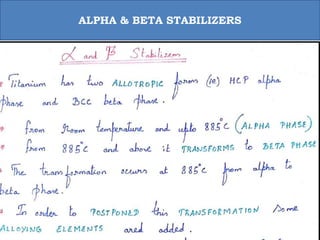 ALPHA & BETA STABILIZERS
α and β Stabilizers
Titanium has two ALLOTROPIC forms (ie) HCP alpha
phase and BCC beta phase.
from Room temperature and upto 885°C (ALPHA PHASE)
from 885°C and above it TRANSFORMS to BETA PHASE
The transformation occurs at 885°C from alpha to
beta phase.
In order to POSTPONED this TRANSFORMATION some
ALLOYING ELEMENTS ared added.